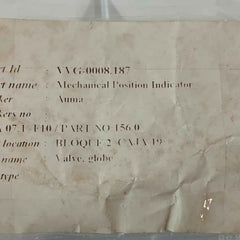 rt Id : VVG-0008.187
rt name : Mechanical Position Indicator
ker : Auma
kers no :
07.1-F10 / PART NO 156.0
location : BLOQUE 2 CAJA 19
name : Valve, globe
type